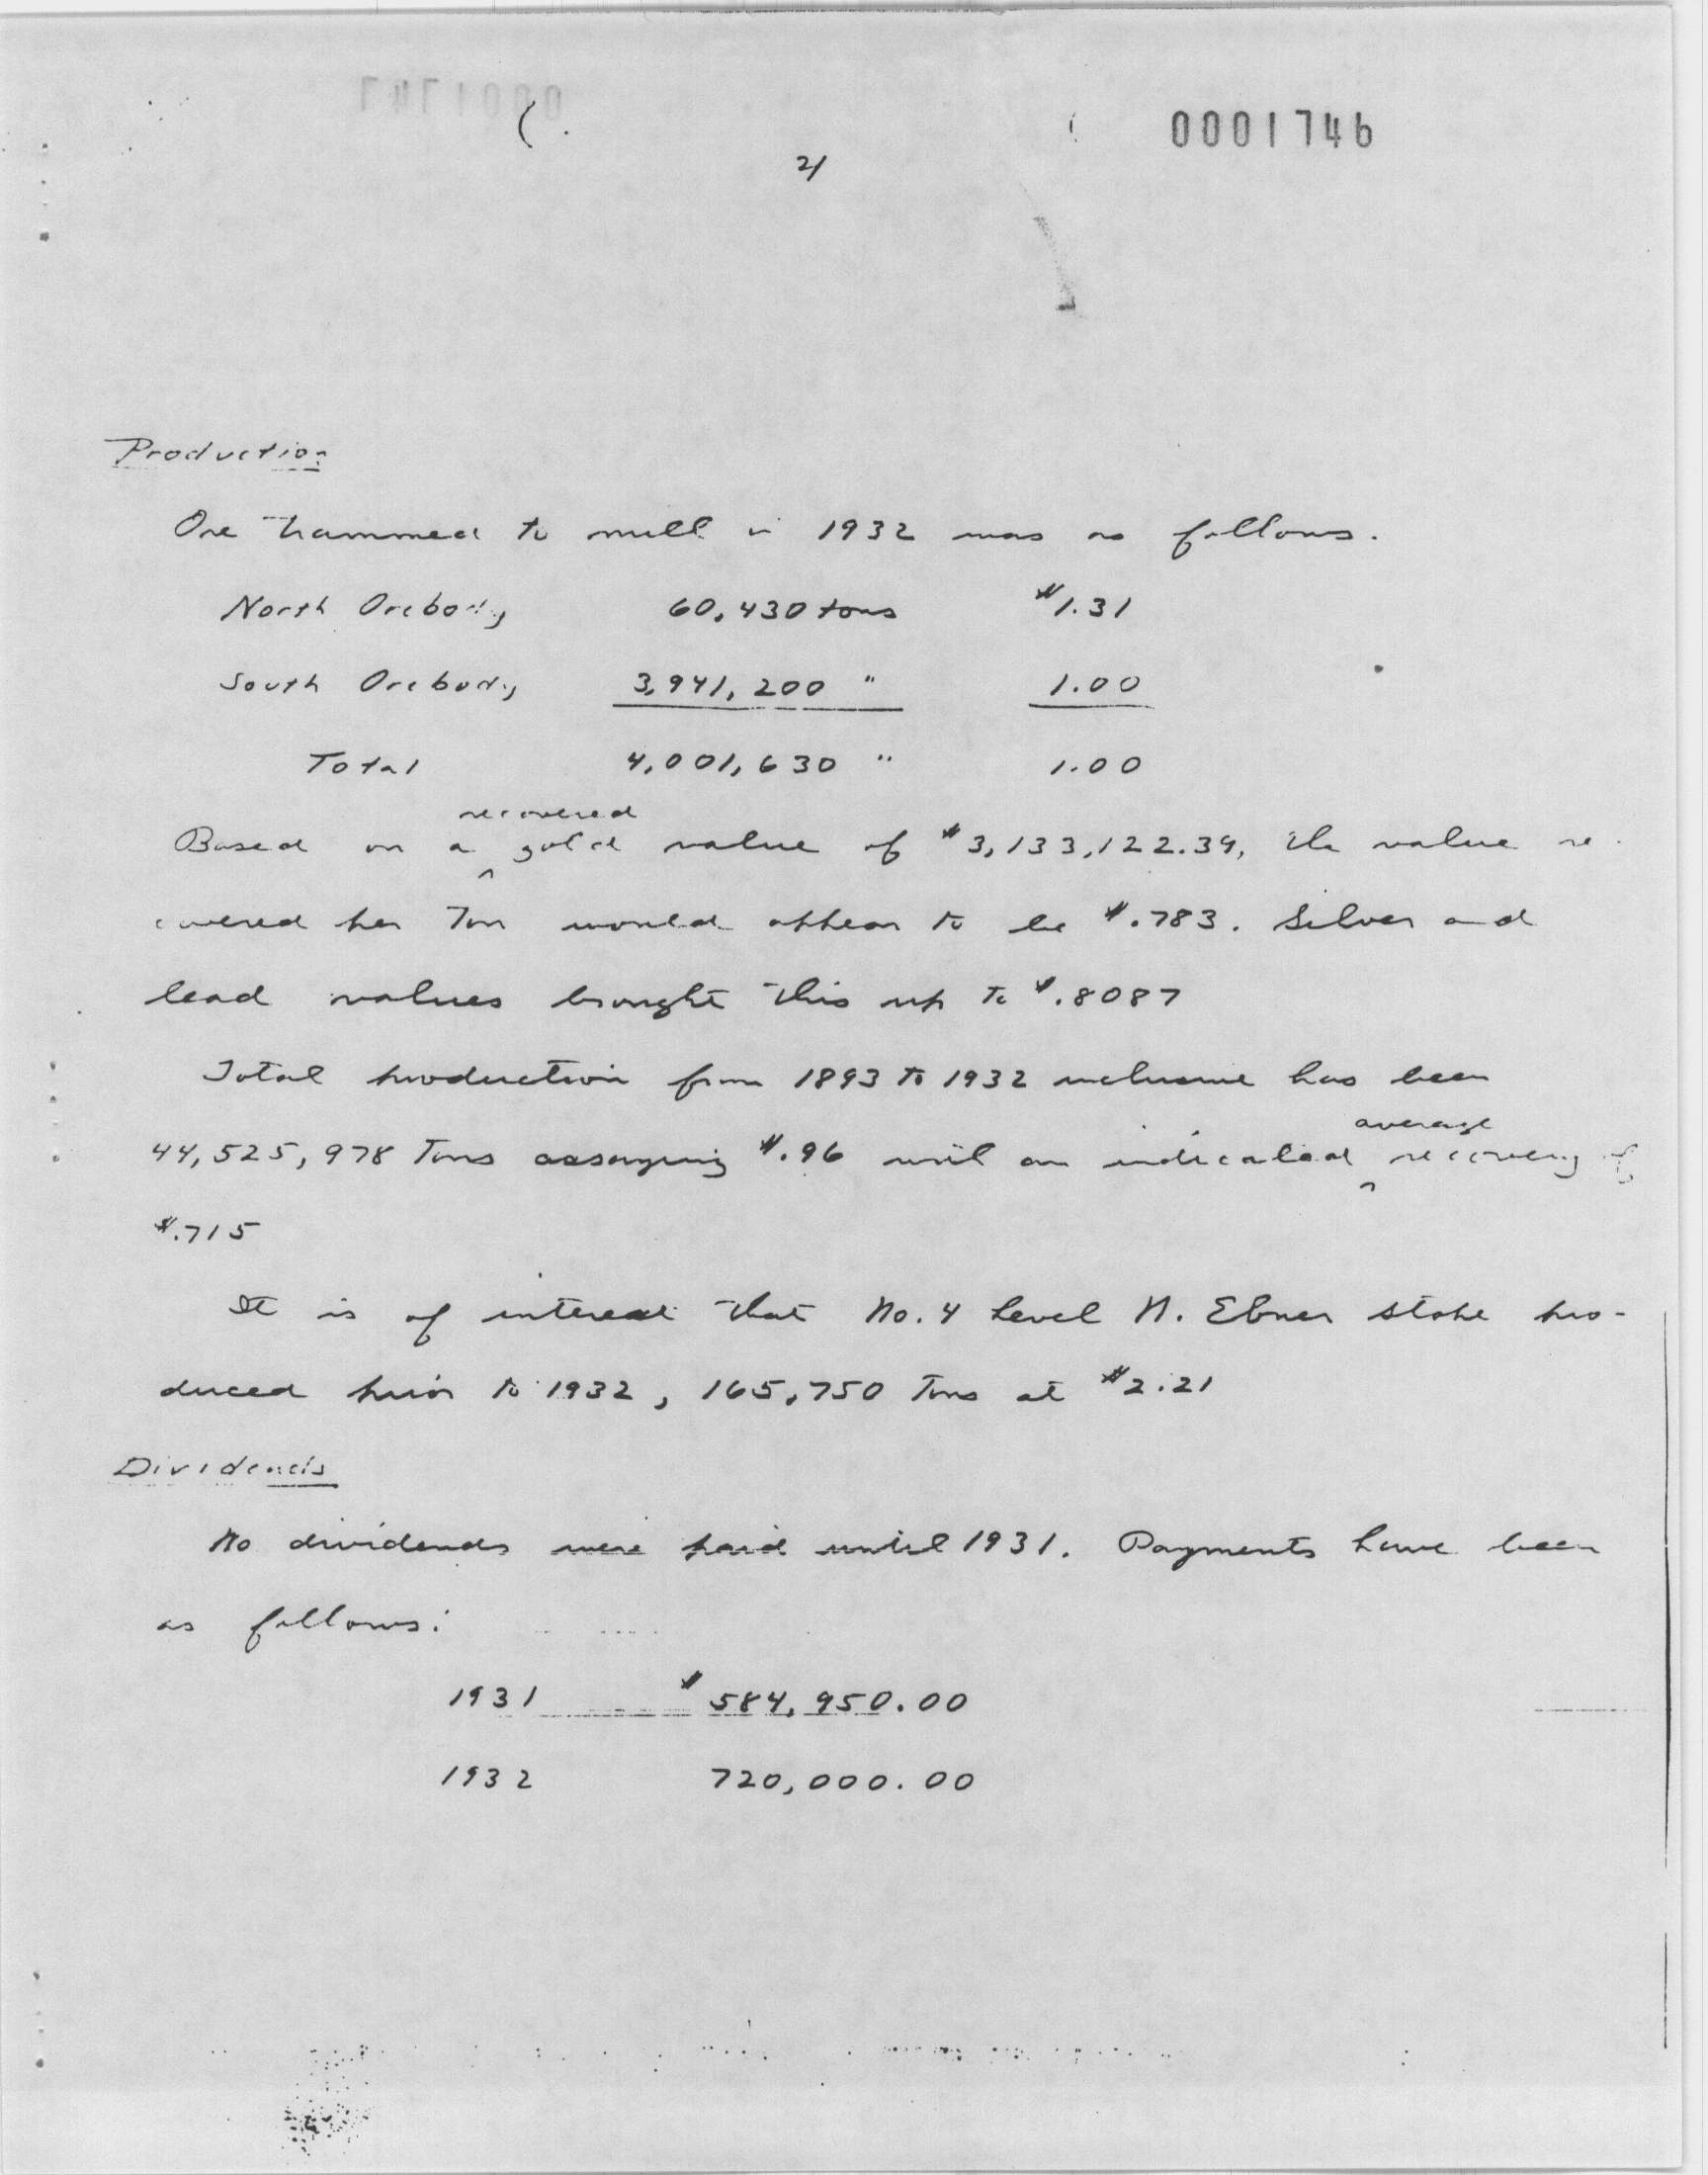 0001746
21
Production
Ore trammed to mill in 1932 was as follows.
North Orebody 60,430 tons $1.31
South Orebody 3,941,200 " 1.00
Total 4,001,630 " 1.00
recovered
Based on a ^ gold value of $3,133,122.39, the value re-
covered per Ton would appear to be $.783. Silver and
lead values brought this up to $.8087
Total production from 1893 to 1932 inclusive has been
average
44,525,978 Tons assaying $.96 with an indicated ^ recovery of
$.715
It is of interest that No. 4 Level N. Ebner stope pro-
duced prior to 1932, 165,750 Tons at $2.21
Dividends
No dividends were paid until 1931. Payments have been
as follows:
1931 $584,950.00
1932 720,000.00